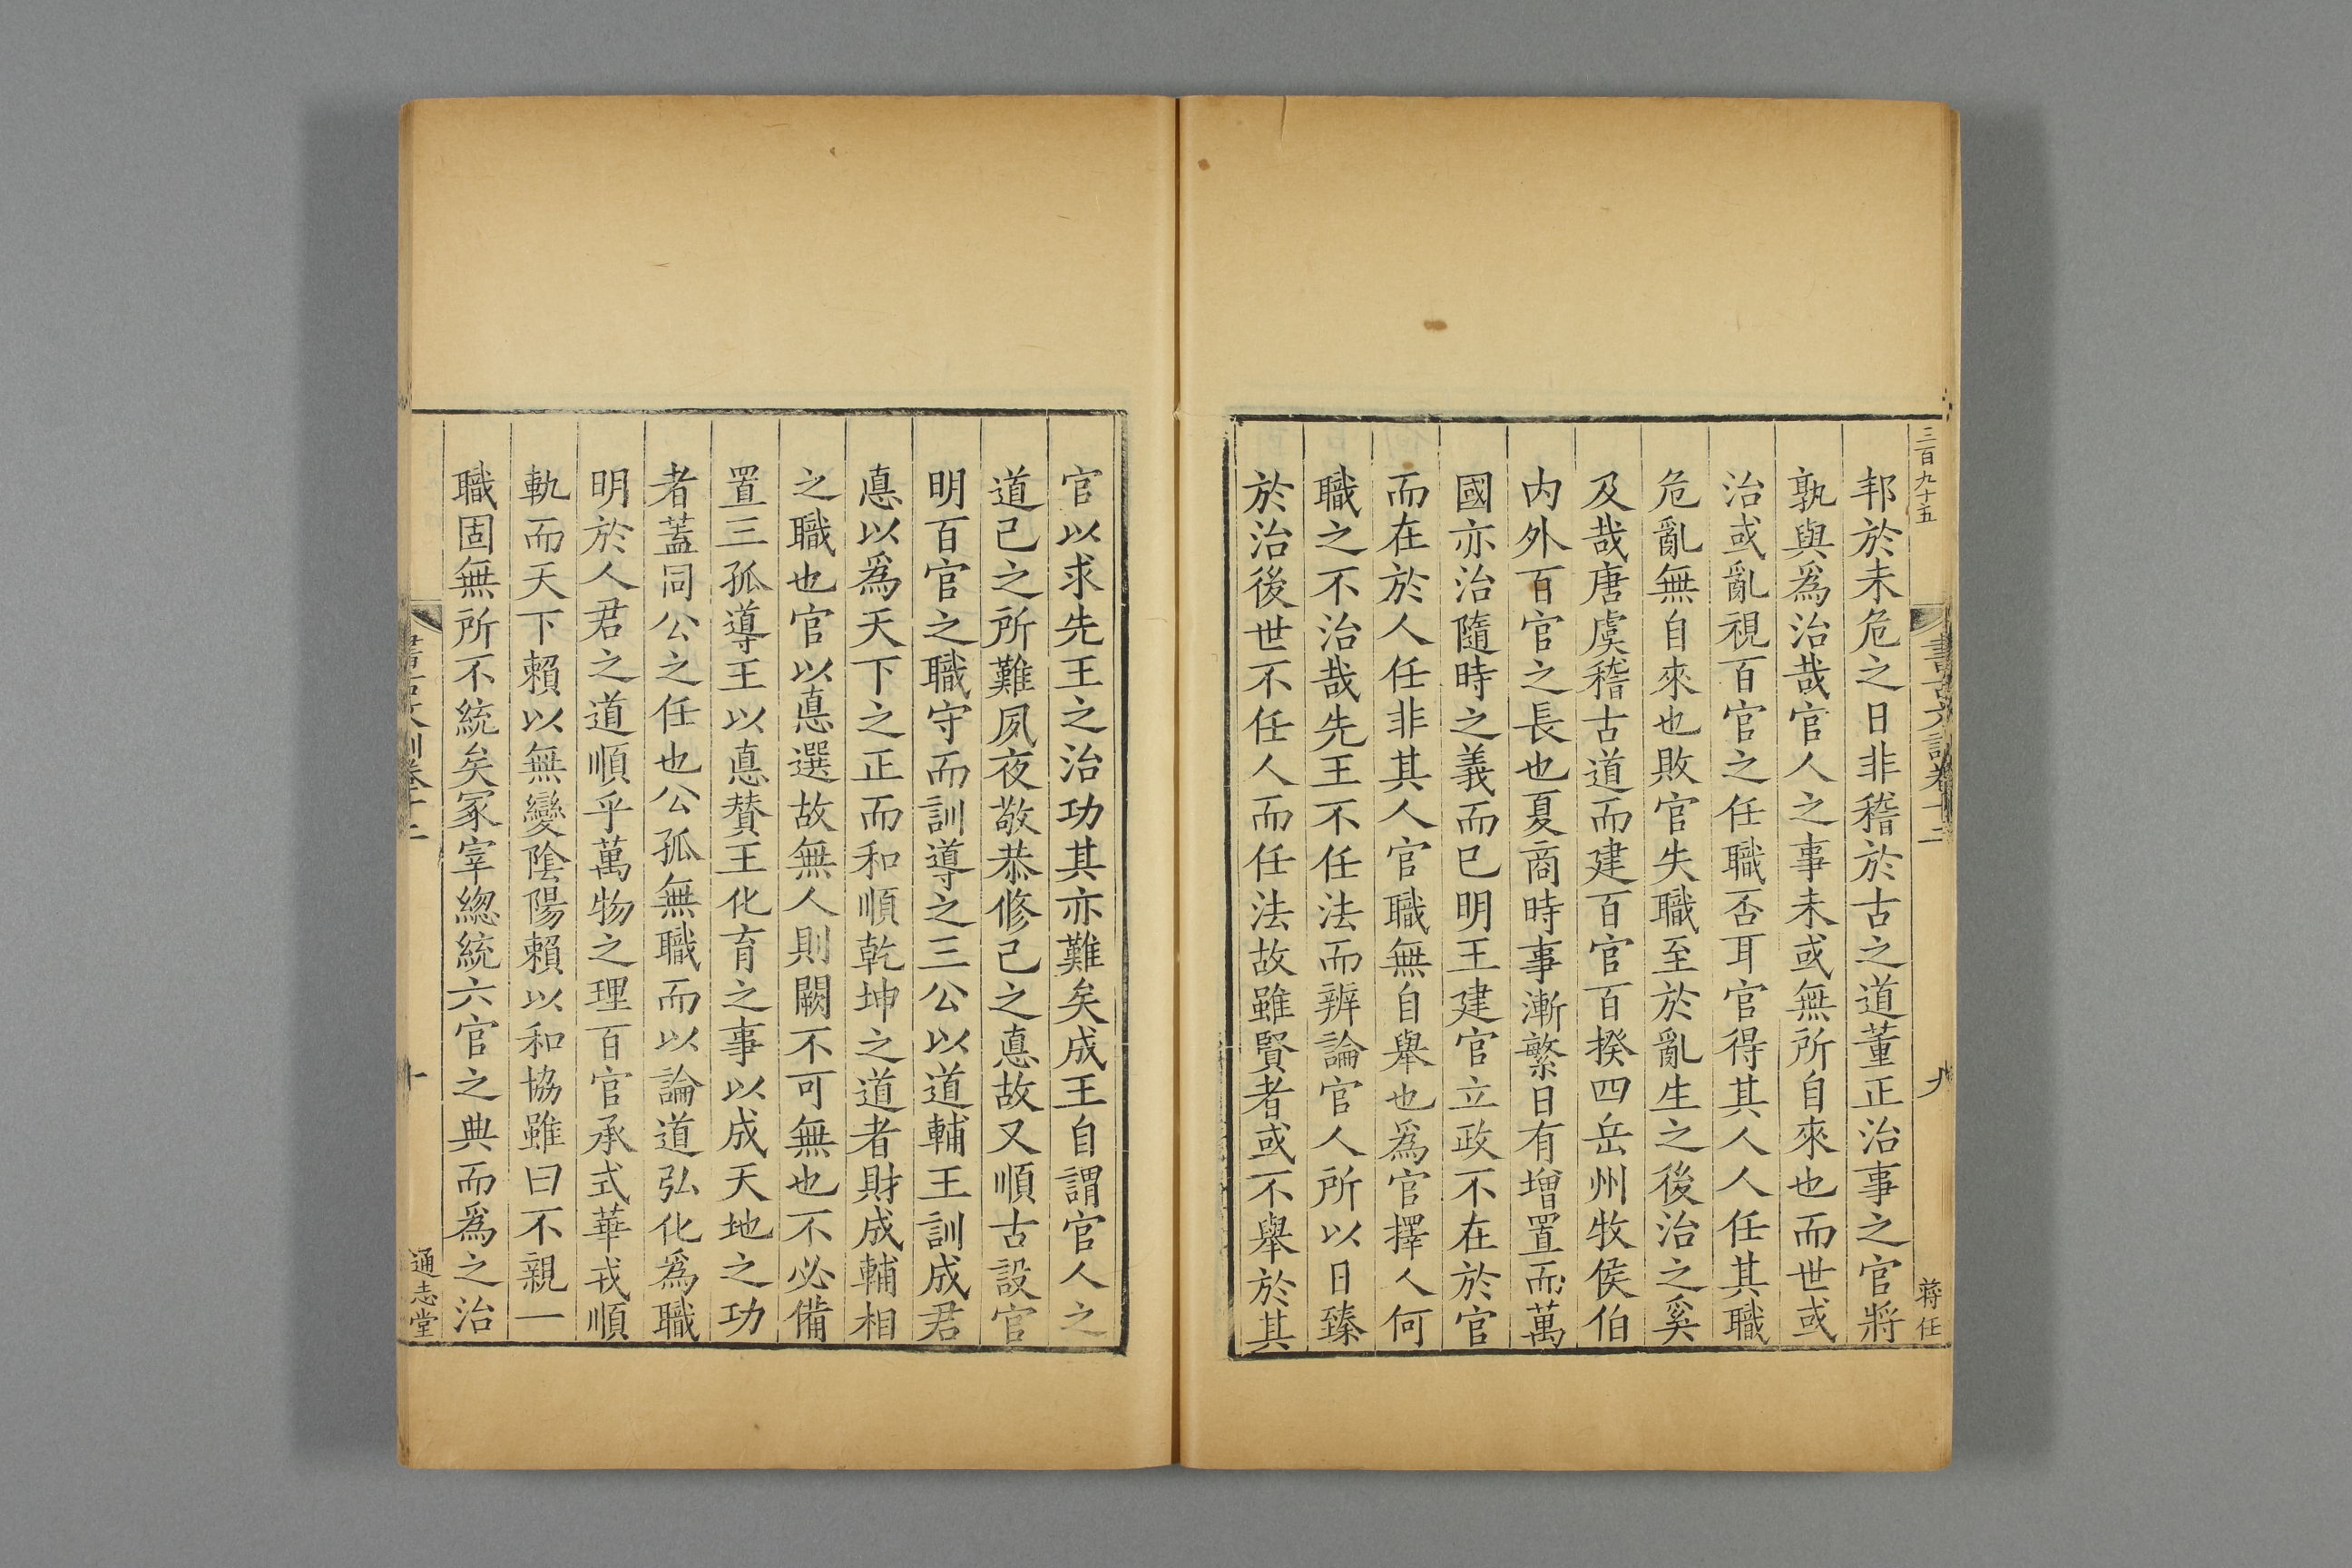 三百九十五
書古文訓卷十二
九
蔣任
邦於未危之日非稽於古之道董正治事之官將
孰與爲治哉官人之事未或無所自來也而世或
治或亂視百官之任職否耳官得其人人任其職
危亂無自來也敗官失職至於亂生之後治之奚
及哉唐虞稽古道而建百官百揆四岳州牧侯伯
内外百官之長也夏商時事漸繁日有增置而萬
國亦治隨時之義而已明王建官立政不在於官
而在於人任非其人官職無自舉也爲官擇人何
職之不治哉先王不任法而辨論官人所以日臻
於治後世不任人而任法故雖賢者或不舉於其
官以求先王之治功其亦難矣成王自謂官人之
道己之所難夙夜敬恭修己之悳故又順古設官
明百官之職守而訓導之三公以道輔王訓成君
悳以爲天下之正而和順乾坤之道者財成輔相
之職也官以悳選故無人則闕不可無也不必備
置三孤導王以悳賛王化育之事以成天地之功
者蓋同公之任也公孤無職而以論道弘化爲職
明於人君之道順乎萬物之理百官承式華戎順
軌而天下賴以無變陰陽賴以和協雖曰不親一
職固無所不統矣冢宰緫統六官之典而爲之治
書古文訓卷十二
十
通志堂